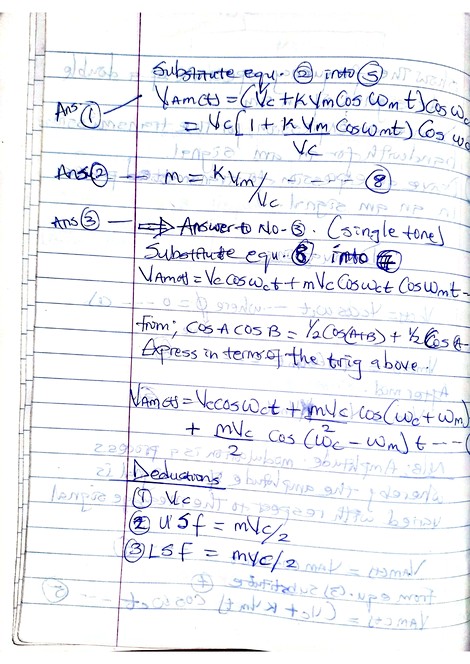 Substitute equ. ② into ⑤
Ans ① VAM(t) = (Vc + K Vm Cos ωm t) Cos ωc
= Vc [1 + K Vm/Vc Cos ωmt) Cos ωc
Ans ② — m = K Vm/Vc --- ⑧
Ans ③ — ⇒ Answer to No-③. (single tone)
Substitute equ. ⑧ into ⑦
VAM(t) = Vc cos ωct + mVc Cos ωct Cos ωmt -
from; cos A cos B = ½ Cos(A+B) + ½ Cos(A-
Express in terms of the trig above.
VAM(t) = Vc cos ωct + mVc/2 cos (ωc + ωm)
+ mVc/2 cos (ωc - ωm) t --- (
Deductions
① Vc
② USf = mVc/2
③ LSf = mVc/2